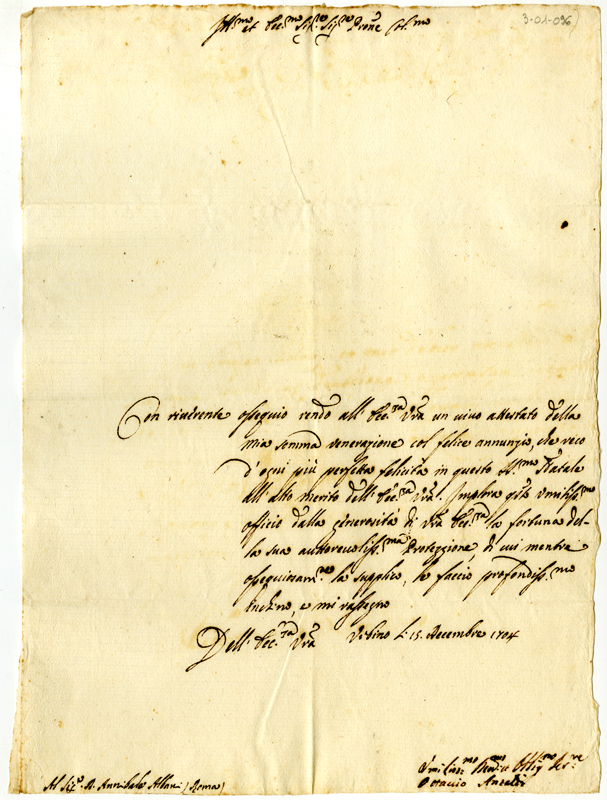 3-01-036
Ill.mo et Ecc.mo Sig.re Sig.re Prone Col.mo
Con riverente ossequio rendo all' Ecc.za Vrã un vivo attestato della
mia somma venerazione col felice annunzio, che reco
d'ogni più perfetta felicità in questo SS.mo Natale
all' alto merito dell' Ecc.za Vrã. Implora q.to umiliss.mo
officio dalla generosità di Vrã Ecc.za la fortuna del-
la sua autorevoliss.ma Protezzione, di cui mentre
ossequiosam.te la supplico, le faccio profondiss.mo
inchino, e mi rassegno
Dell' Ecc.za Vrã Urbino li 15. Decembre 1704
Umiliss.mo Devot.mo Oblig.mo Ser.re
Al Sig.r D. Annibale Albani (Roma) Ottavio